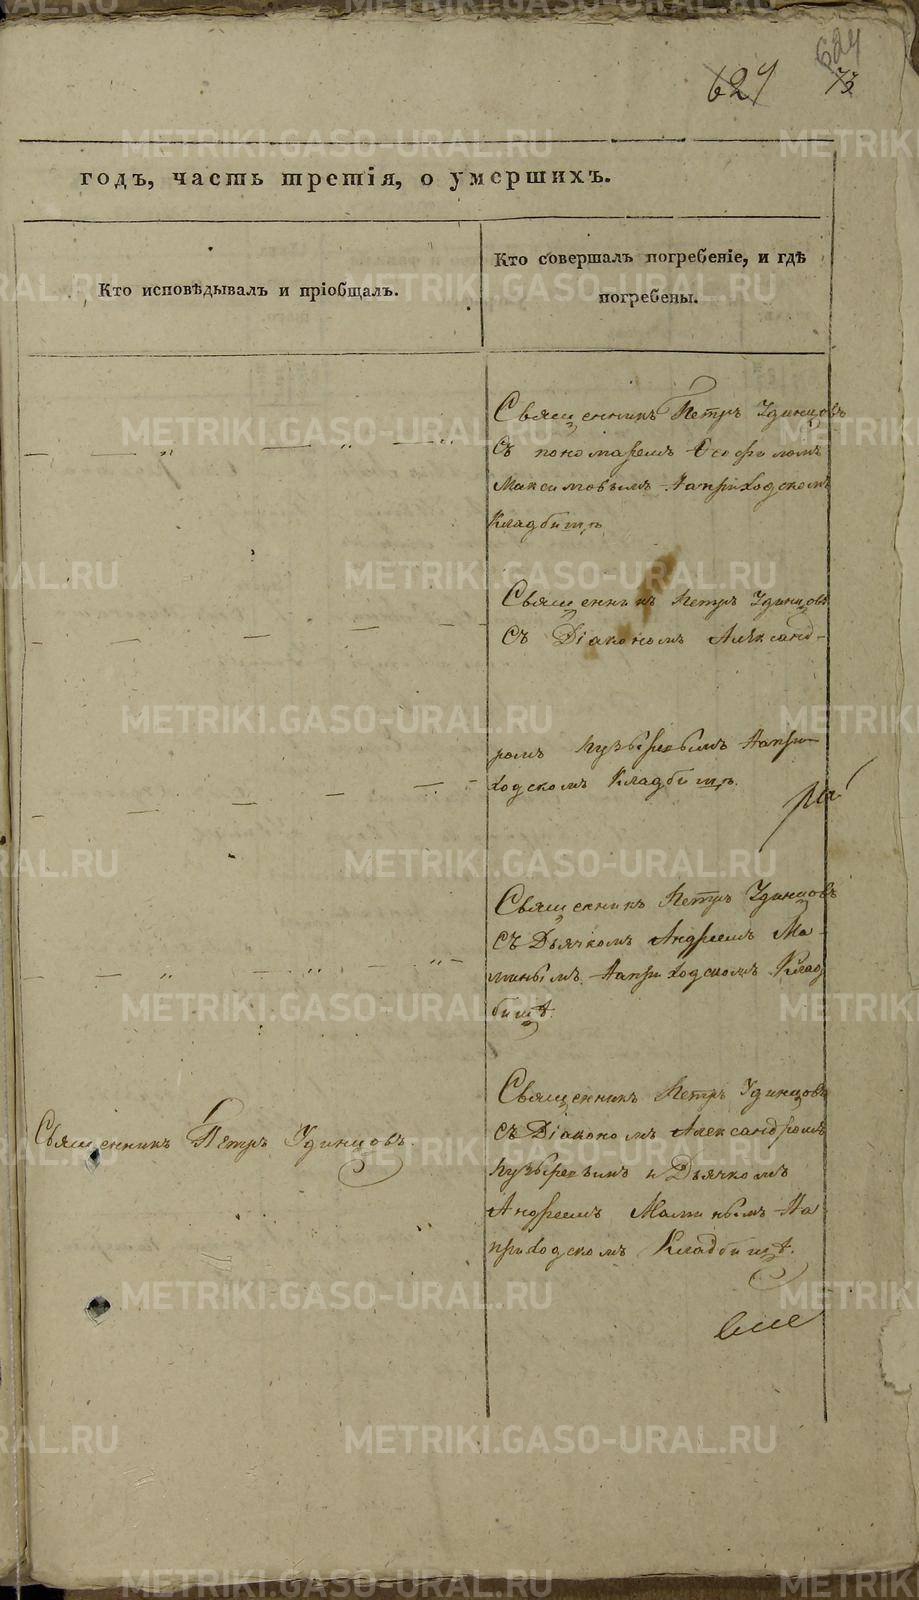 624
624
73
годъ, часть третія, о умершихъ.
Кто исповѣдывалъ и пріобщалъ.
Кто совершалъ погребеніе, и гдѣ
погребены.
Священникъ Петръ Удинцовъ
Съ пономаремъ Ѳеофиломъ
Максимовымъ На приходскомъ
Кладбищѣ
Священникъ Петръ Удинцовъ
Съ Діакономъ Александ-
ромъ Пузыревымъ На при-
ходскомъ Кладбищѣ.
Священникъ Петръ Удинцовъ
Съ Дьячкомъ Андреемъ Ма-
минымъ На приходскомъ Клад
бищѣ.
Священникъ Петръ Удинцовъ.
Священникъ Петръ Удинцовъ
Съ Діакономъ Александромъ
Пузыревымъ и Дьячкомъ
Андреемъ Маминымъ На
приходскомъ Кладбищѣ.
METRIKI.GASO-URAL.RU